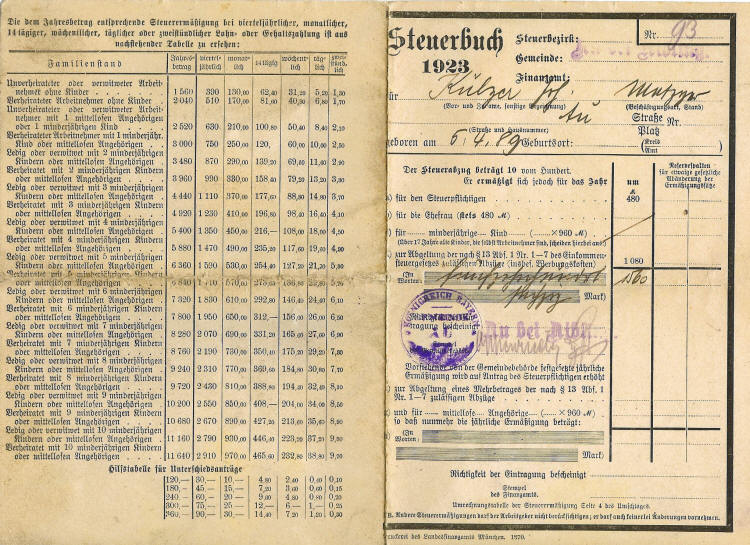 Die dem Jahresbetrag entsprechende Steuerermäßigung bei vierteljährlicher, monatlicher,
14tägiger, wöchentlicher, täglicher oder zweistündlicher Lohn- oder Gehaltszahlung ist aus
nachstehender Tabelle zu ersehen:
Familienstand Jahres-betrag viertel-jährlich monat-lich 14tägig wöchent-lich täg-lich zwei-stündlich
Unverheirateter oder verwitweter Arbeit-
nehmer ohne Kinder 1 560 390 130,00 62,40 31,20 5,20 1,30
Verheirateter Arbeitnehmer ohne Kinder 2 040 510 170,00 81,60 40,80 6,80 1,70
Unverheirateter oder verwitweter Arbeit-
nehmer mit 1 minderjährigen
oder 1 minderjährigen Kind 2 520 630 210,00 100,80 50,40 8,40 2,10
Verheirateter Arbeitnehmer mit 1 minderjähr.
Kind oder mittellosen Angehörigen 3 000 750 250,00 120, 60,00 10,00 2,50
Ledig oder verwitwet mit 2 minderjährigen
Kindern oder mittellosen Angehörigen 3 480 870 290,00 139,20 69,60 11,60 2,90
Verheiratet mit 2 minderjährigen Kindern
oder mittellosen Angehörigen 3 960 990 330,00 158,40 79,20 13,20 3,30
Ledig oder verwitwet mit 3 minderjährigen
Kindern oder mittellosen Angehörigen 4 440 1 110 370,00 177,60 88,80 14,80 3,70
Verheiratet mit 3 minderjährigen Kindern
oder mittellosen Angehörigen 4 920 1 230 410,00 196,80 98,40 16,40 4,10
Ledig oder verwitwet mit 4 minderjährigen
Kindern oder mittellosen Angehörigen 5 400 1 350 450,00 216,— 108,00 18,00 4,50
Verheiratet mit 4 minderjährigen Kindern
oder mittellosen Angehörigen 5 880 1 470 490,00 235,20 117,60 19,60 4,90
Ledig oder verwitwet mit 5 minderjährigen
Kindern oder mittellosen Angehörigen 6 360 1 590 530,00 254,40 127,20 21,20 5,30
Verheiratet mit 5 minderjährigen Kindern
oder mittellosen Angehörigen 6 840 1 710 570,00 5,70
Ledig oder verwitwet mit 6 minderjährigen
Kindern oder mittellosen Angehörigen 7 320 1 830 610,00 292,80 146,40 24,40 6,10
Verheiratet mit 6 minderjährigen Kindern
oder mittellosen Angehörigen 7 800 1 950 650,00 312,— 156,00 26,00 6,50
Ledig oder verwitwet mit 7 minderjährigen
Kindern oder mittellosen Angehörigen 8 280 2 070 690,00 331,20 165,60 27,60 6,90
Verheiratet mit 7 minderjährigen Kindern
oder mittellosen Angehörigen 8 760 2 190 730,00 350,40 175,20 29,20 7,30
Ledig oder verwitwet mit 8 minderjährigen
Kindern oder mittellosen Angehörigen 9 240 2 310 770,00 369,60 184,80 30,80 7,70
Verheiratet mit 8 minderjährigen Kindern
oder mittellosen Angehörigen 9 720 2 430 810,00 388,80 194,40 32,40 8,10
Ledig oder verwitwet mit 9 minderjährigen
Kindern oder mittellosen Angehörigen 10 200 2 550 850,00 408,— 204,00 34,00 8,50
Verheiratet mit 9 minderjährigen Kindern
oder mittellosen Angehörigen 10 680 2 670 890,00 427,20 213,60 35,60 8,90
Ledig oder verwitwet mit 10 minderjährigen
Kindern oder mittellosen Angehörigen 11 160 2 790 930,00 446,40 223,20 37,20 9,30
Verheiratet mit 10 minderjährigen Kindern
oder mittellosen Angehörigen 11 640 2 910 970,00 465,60 232,80 38,80 9,70
Hilfstabelle für Unterschiedsanträge
120,— 30,— 10,— 4,80 2,40 0,40 0,10
180,— 45,— 15,— 7,20 3,60 0,60 0,15
240,— 60,— 20,— 9,60 4,80 0,80 0,20
300,— 75,— 25,— 12,— 6,— 1,— 0,25
360,— 90,— 30,— 14,40 7,20 1,20 0,30
Nr. 93
Steuerbuch
1923
Steuerbezirk:
Gemeinde:
Finanzamt:
für Kulzer Jos. Metzger
(Vor- und Zuname, sonstige Bezeichnung) (Beschäftigungsart, Stand)
Au Straße Nr.
Platz
(Straße und Hausnummer)
geboren am 5.4.89 Geburtsort: (Kreis
Amt)
Der Steuerabzug beträgt 10 vom Hundert.
Er ermäßigt sich jedoch für das Jahr um
Reservespalten für etwaige gesetzliche Abänderung der Ermäßigungssätze
für den Steuerpflichtigen 480
für die Ehefrau (stets 480 M)
für minderjährige Kind (×960 M)
(Über 17 Jahre alte Kinder, die selbst Arbeitnehmer sind, scheiden hierbei aus)
zur Abgeltung der nach § 13 Abs. 1 Nr. 1—7 des Einkommen-
steuergesetzes zulässigen Abzüge (insbes. Werbungskosten) 1 080
(In Worten: fünfzehnhundert
sechzig Mark) 1560
KÖNIGREICH BAYERN
GEMEINDE
AU
Eintragung bescheinigt
Au bei
Vorstehende von der Gemeindebehörde festgesetzte jährliche
Ermäßigung wird auf Antrag des Steuerpflichtigen erhöht
zur Abgeltung eines Mehrbetrages der nach § 13 Abs. 1
Nr. 1—7 zulässigen Abzüge
und für mittellose Angehörige (× 960 M)
so daß nunmehr die jährliche Ermäßigung beträgt:
(In Worten:
Mark)
Richtigkeit der Eintragung bescheinigt
Stempel
des Finanzamts.
Umrechnungstabelle der Steuerermäßigung Seite 4 des Umschlages.
B. Andere Steuerermäßigungen darf der Arbeitgeber nicht berücksichtigen; er darf auch keinerlei Änderungen vornehmen.
Druckerei des Landesfinanzamts München. 1870.